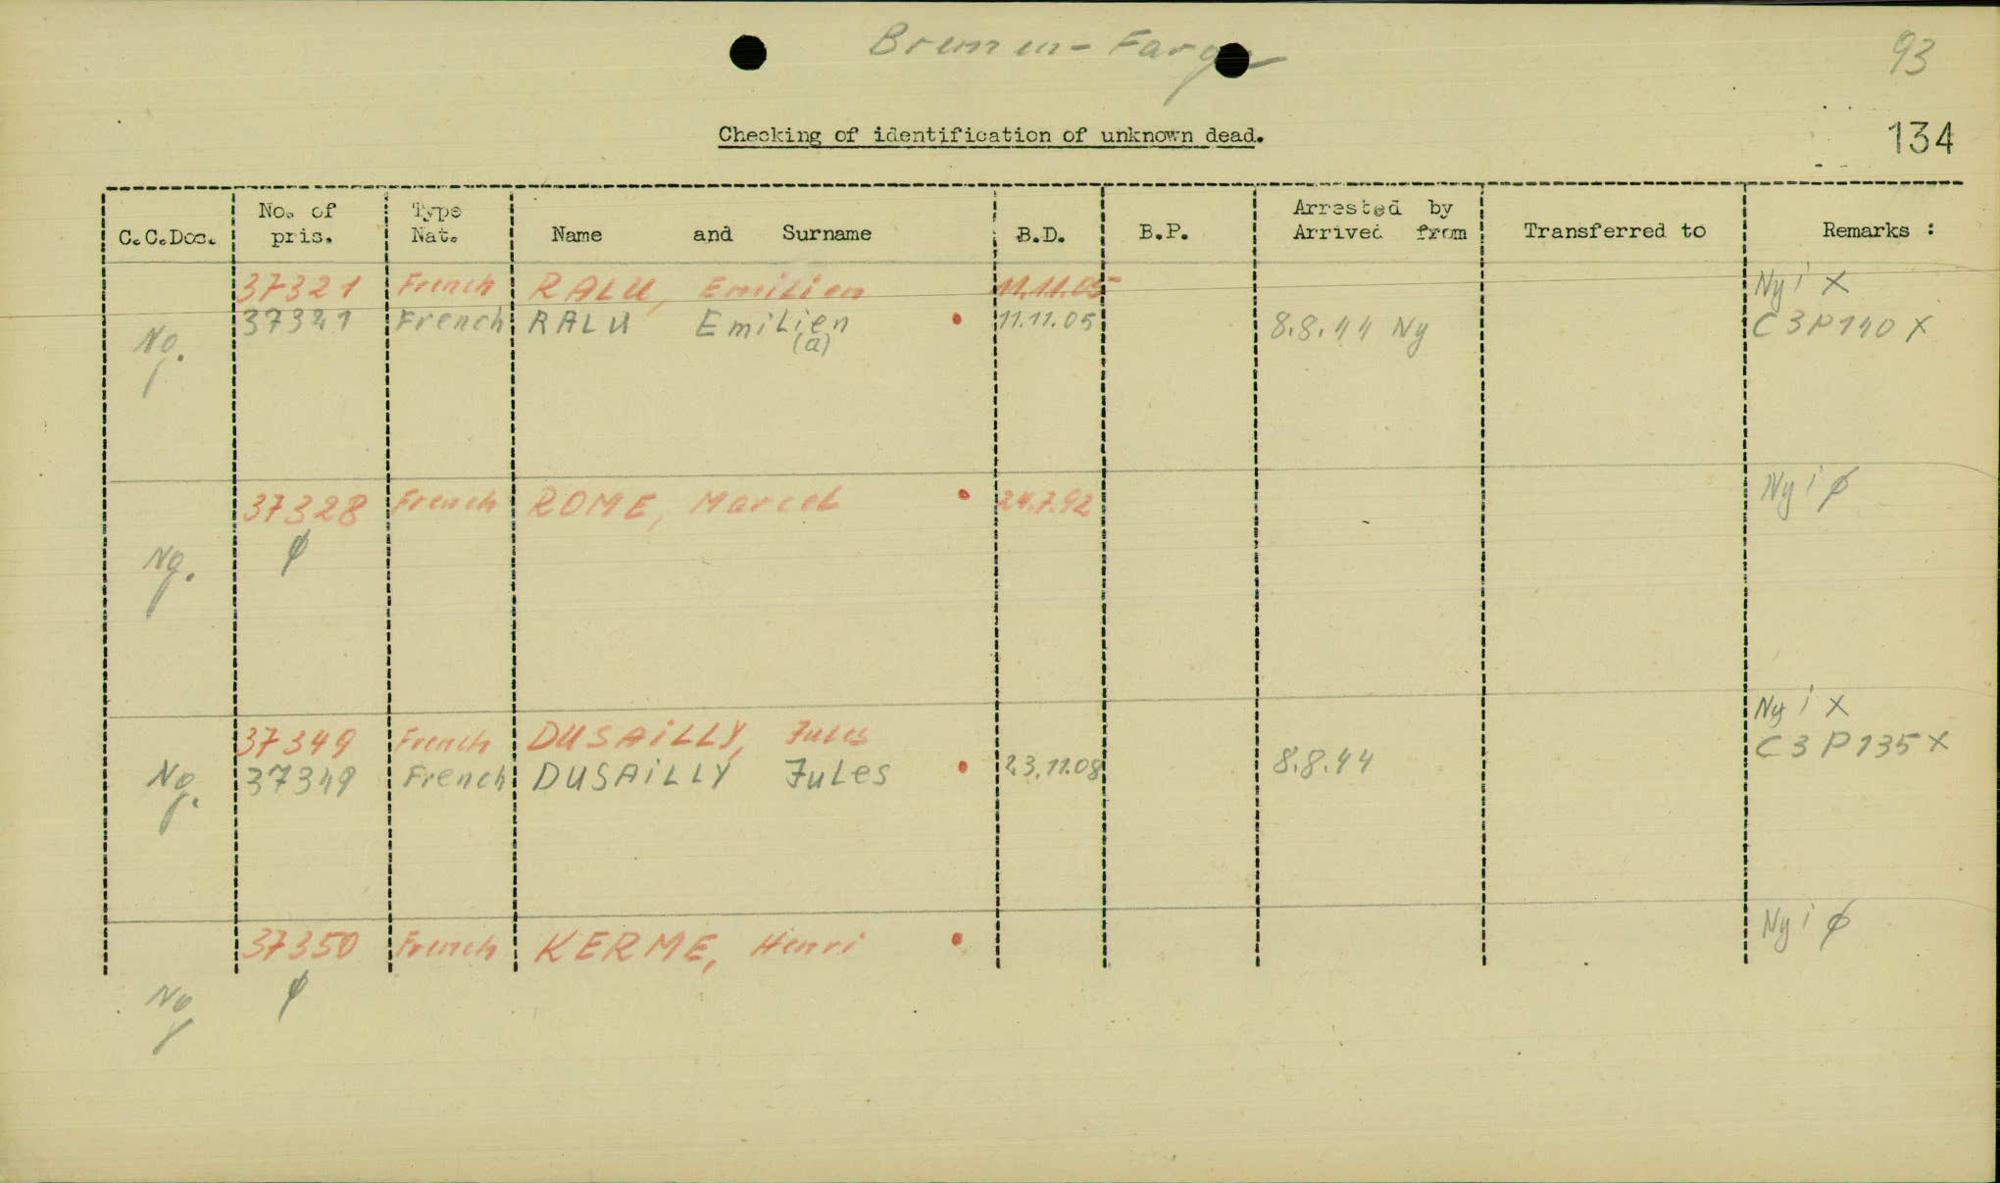 Bremen-Farge
93
Checking of identification of unknown dead.
134
C.C.Doc. No. of pris. Type Nat. Name and Surname B.D. B.P. Arrested by Arrived from Transferred to Remarks :
37321 French RALU, Emilien 11.11.05 Ny i X
Ng. 37321 French RALU Emilien (a) 11.11.05 8.8.44 Ny C3P140 X
37328 French ROME, Marcel 24.7.92 Ny i ø
Ng. ø
37349 French DUSAiLLY, Jules Ny i X
Ng. 37349 French DUSAiLLY Jules 23.11.08 8.8.44 C3P135 X
37350 French KERME, Henri Ny i ø
Ng ø